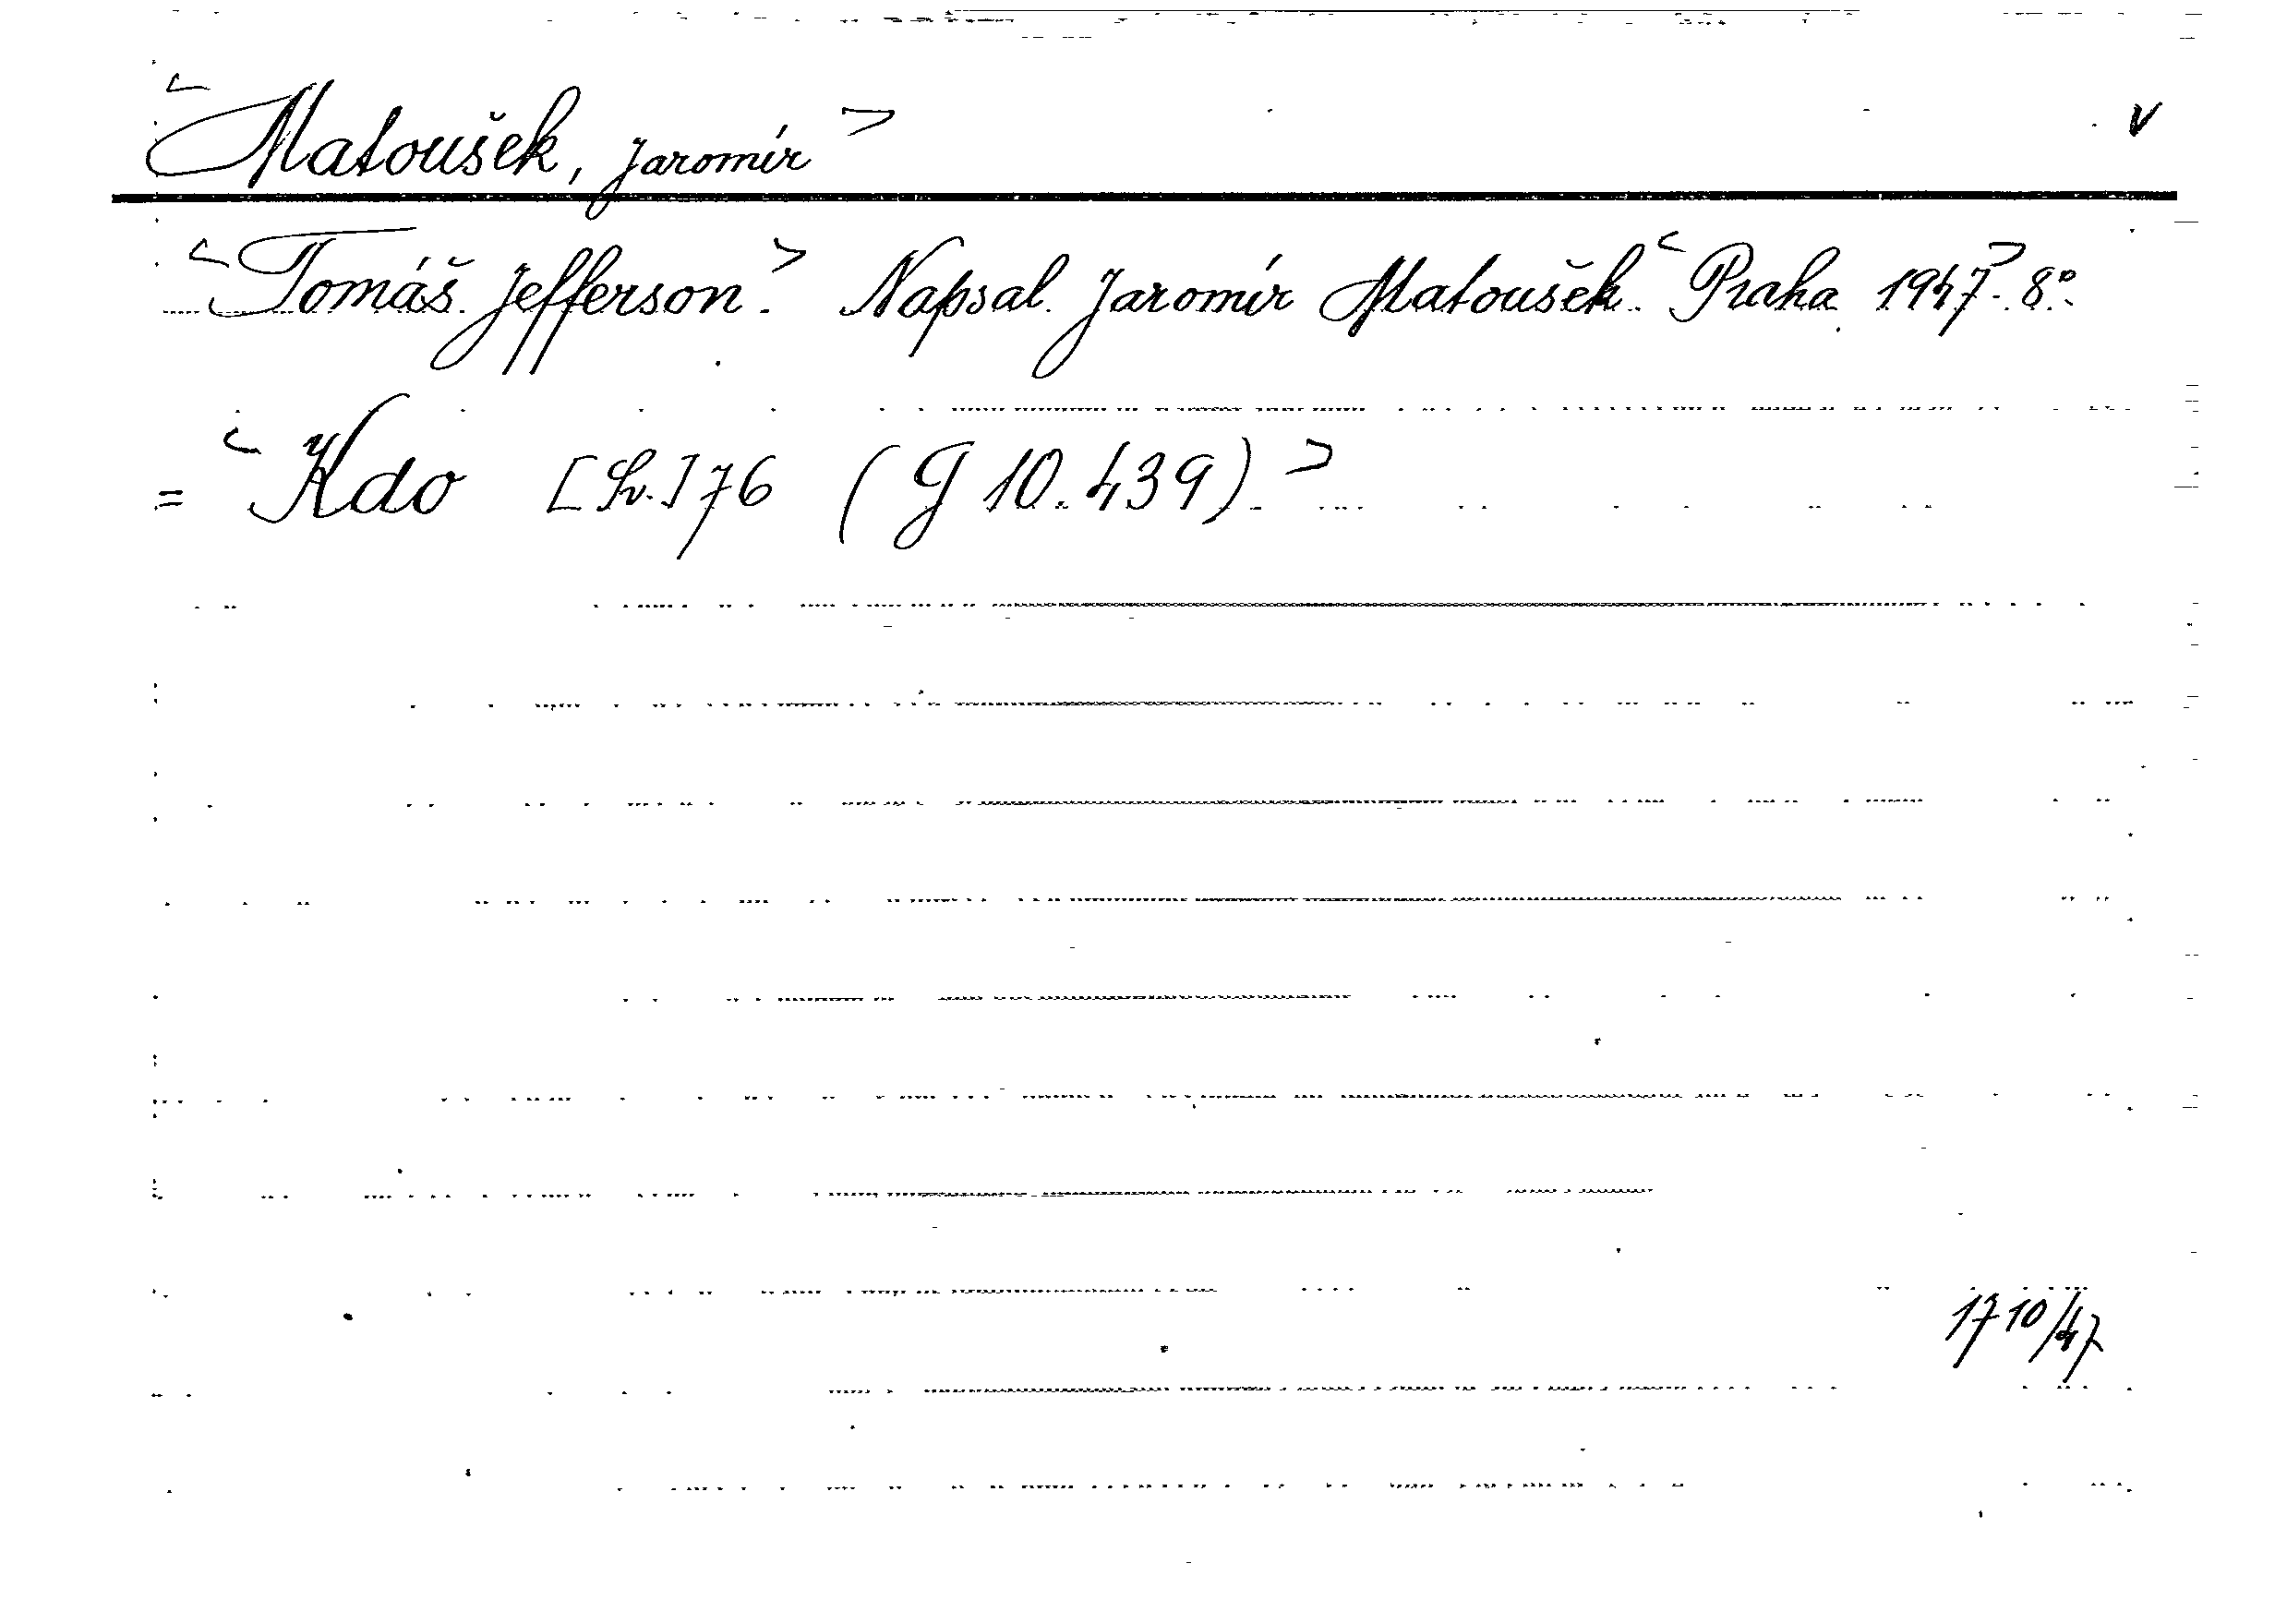 <Matoušek, Jaromír> v
<Tomáš Jefferson.> Napsal Jaromír Matoušek. <Praha 1947.> 8°.
= <Kdo [Sv.] 76 (G 10.439).>
1710/47